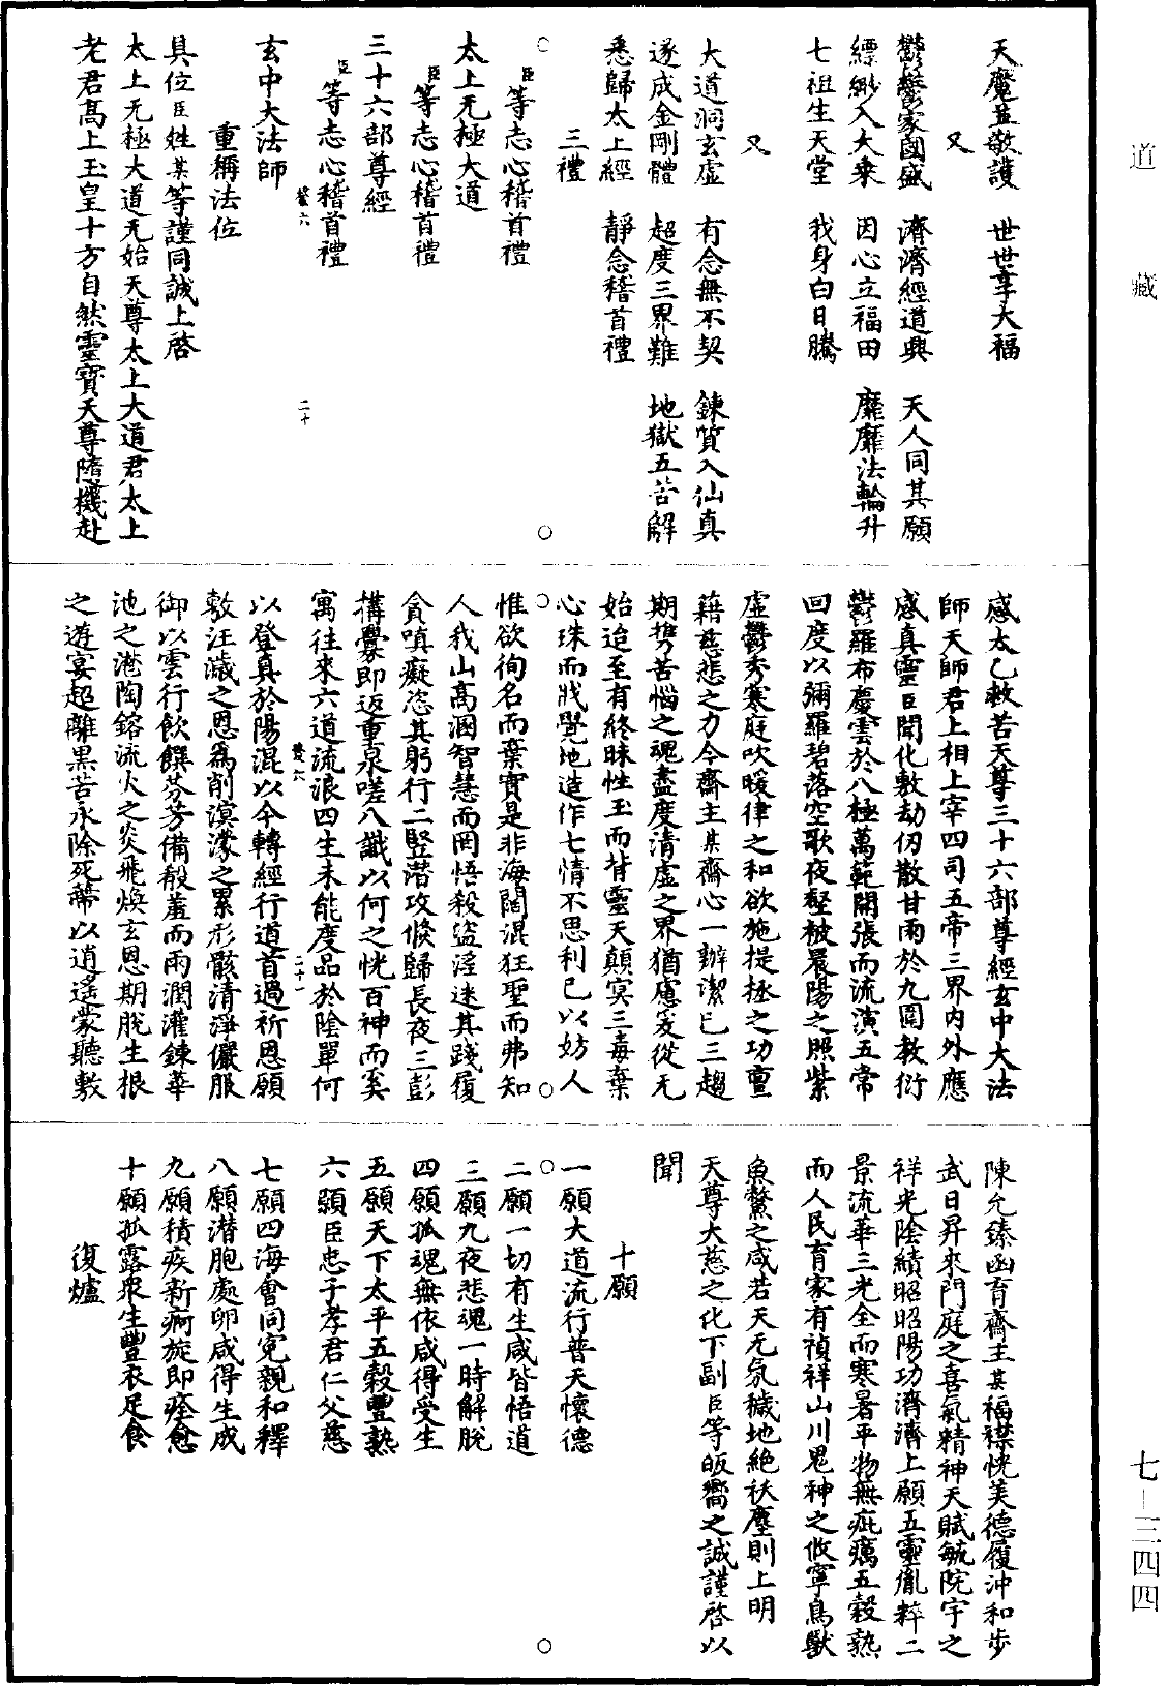 道藏
天魔並敬護　世世享大福
又
鬱鬱家國盛　濟濟經道興　天人同其願
縹緲入大乘　因心立福田　靡靡法輪升
七祖生天堂　我身白日騰
又
大道洞玄虛　有念無不契　鍊質入仙真
遂成金剛體　超度三界難　地獄五苦解
悉歸太上經　靜念稽首禮
三禮
臣等志心稽首禮
太上无極大道
臣等志心稽首禮
三十六部尊經
臣等志心稽首禮
玄中大法師
重稱法位
具位臣姓某等謹同誠上啓
太上无極大道无始天尊太上大道君太上
老君高上玉皇十方自然靈寶天尊隨機赴
感太乙救苦天尊三十六部尊經玄中大法
師天師君上相上宰四司五帝三界內外應
感真靈臣聞化敷劫仞散甘雨於九圍教衍
鬱羅布慶雲於八極萬範開張而流演五常
回度以彌羅碧落空歌夜壑被晨陽之照紫
虛鬱秀寒庭吹暖律之和欲施提拯之功亶
藉慈悲之力今齋主某齋心一辦潔已三趨
期雋苦惱之魂盡度清虛之界猶慮爰從无
始迨至有終昧性玉而背靈天顛冥三毒棄
心珠而戕覺地造作七情不思利已以妨人
惟欲徇名而棄實是非海闊混狂聖而弗知
人我山高溷智慧而罔悟殺盜淫迷其踐履
貪嗔癡恣其躬行二豎潛攻倏歸長夜三彭
搆釁即返重泉嗟八識以何之恍百神而奚
寓往來六道流浪四生未能度品於陰單何
以登真於陽混以今轉經行道首過祈恩願
敷汪濊之恩爲削溟濛之累形骸清淨儼服
御以雲行飲饌芬芳備殽羞而雨潤灌鍊華
池之港陶鎔流火之炎飛煥玄恩期脫生根
之遊宴超離黑苦永除死蔕以逍遙蒙聽敷
陳允臻函育齋主某福襟恍美德履沖和步
武日昇來門庭之喜氣精神天賦毓院宇之
祥光陰績昭昭陽功濟濟上願五靈胤粹二
景流華三光全而寒暑平物無疵癘五穀熟
而人民育家有禎祥山川鬼神之攸寧鳥獸
魚鱉之咸若天无氛穢地絕祅塵則上明
天尊大慈之化下副臣等皈嚮之誠謹啓以
聞
十願
一願大道流行普天懷德
二願一切有生咸皆悟道
三願九夜悲魂一時解脫
四願孤魂無依咸得受生
五願天下太平五穀豐熟
六願臣忠子孝君仁父慈
七願四海會同冤親和釋
八願潛胞處卵咸得生成
九願積疾新痾旋即痊愈
十願孤露眾生豐衣足食
復爐
七—三四四